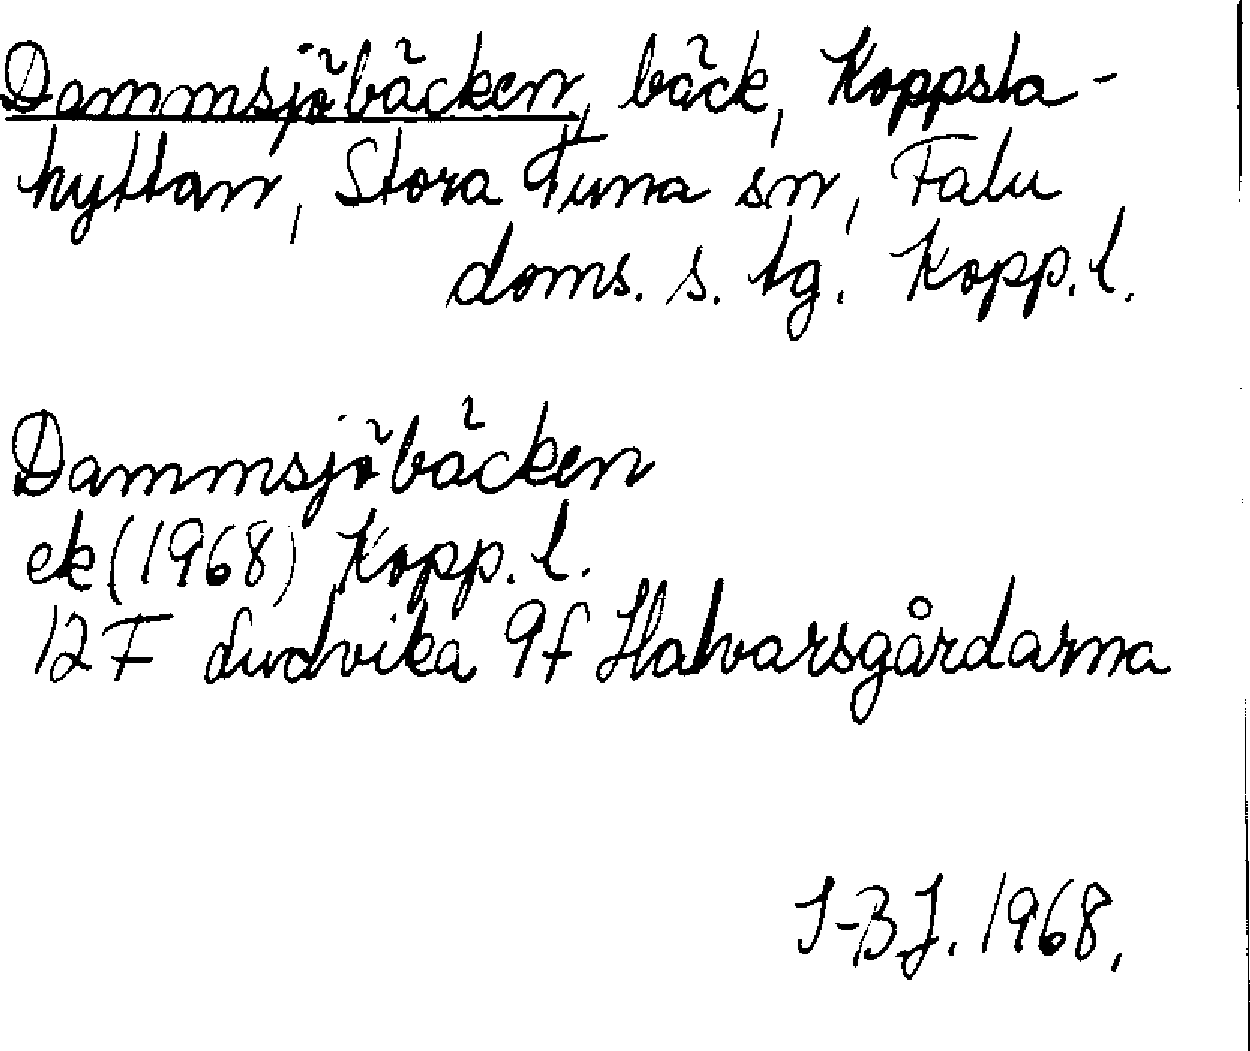 Dammsjöbäcken, bäck, Koppsla-
hyttan, Stora Tuna sn, Falu
doms. s. tg. Kopp. l.
Dammsjöbäcken
ek (1968) Kopp. l.
12 F Ludvika 9f Halvarsgårdarna
I-BJ. 1968.